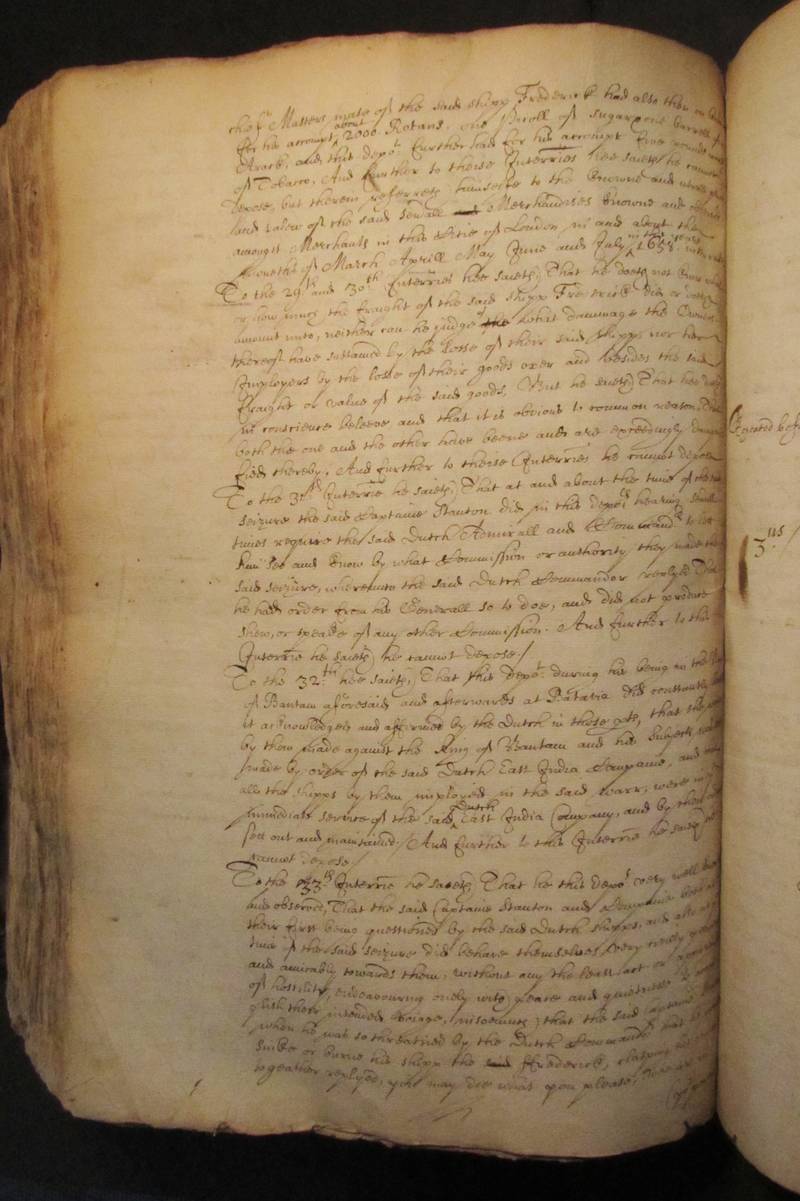 chofe Masters mate of the said shipp Frederick had also then on
for his accompt about 2000 Rotans, one Baroll of sugar, one barrell of
Arack, and this depot. further had for his accompt five pounds
of Tobacco. And further to theise Interries hee saieth he cannot
depose, but therein referreth himselfe to the knowne and
and valew of the said severall Merchandises knowne and
amongst Merchants in this Citie of London in and about the
moneths of March Aprill May June and July in the 1658.
To the 29th and 30th Interries hee saieth That he doeth not know
or how much the fraight of the said shipp Frederick did or would
amount unto, neither can he judge what dammage the Owners
thereof have sustained by the losse of their said shipp, nor her
Imployers by the losse of their goods over and besides the said
fraight or value of the said goods, But he saieth That hee doth
in conscience beleeve and that it is obvious to common reason, That
both the one and the other have beene and are exceedingly
fied thereby. And further to theise Interries he cannot depose
To the 31th Interrie he saieth That at and about the time of the
seizure the said Captaine Stanton did in this depots hearing severall
times require the said Dutch Admirall and Command to let
him see and know by what Commission or authority they made the
said seizure, whereunto the said Dutch Commander replyed That
he had order from his Generall so to doe, and did not produce
shew, or speake of any other Commission. And further to this
Interrie he saieth he cannot depose./
To the 32th hee saieth, That this depot. during his being in the
of Bantam aforesaid and afterwards at Batavia did constantly
it acknowledged and affirmed by the Dutch in those pts, that the
by them made against the King of Bantam and his Subjects
made by order of the said Dutch East India Companie, and
all the shipps by them imployed in the said warr, were in
immediate service of the said Dutch East India Company, and by them
sett out and maintained./ And further to this Interrie he saieth he
cannot depose./
To the 33th Interrie he saieth That he this depot very well
and observed, That the said Captaine Stanton and Companie both at
their first being questioned by the said Dutch shipps, and
time of the said seizure did behave themselves very civily
and amicably towards them, without any the least act or
of hostility, endeavouring onely with peace and quietnes to
plish their intended voiage, insoemuch that the said Captaine
when he was so threatned by the Dutch Command that he
sinke or burne his shipp the Frederick, clapping his
togeather replyed, you may doe what you please,
Repeated before
3us /